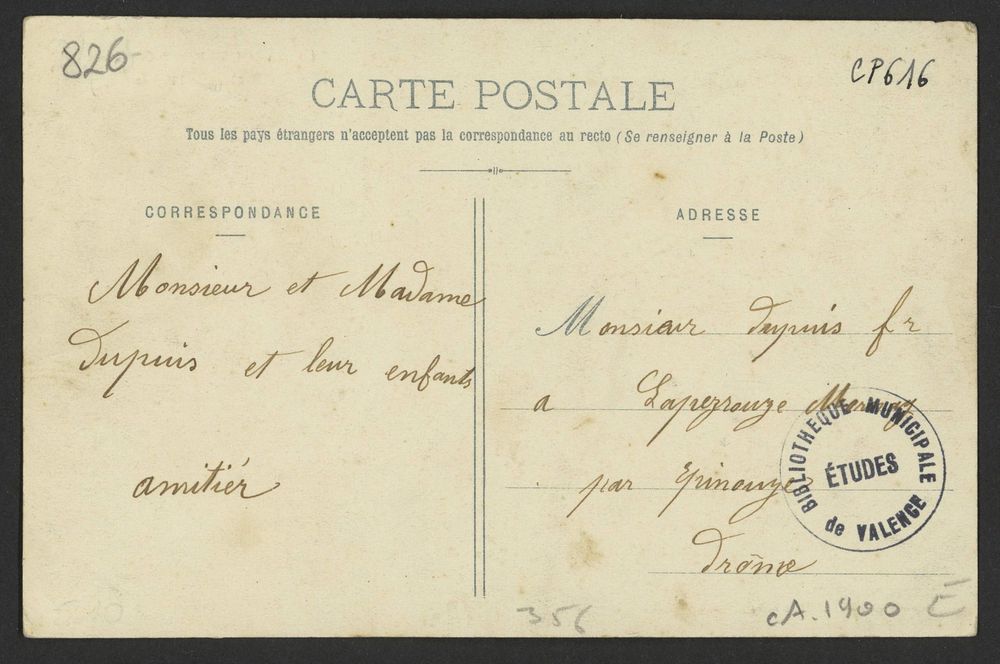 826
CP616
CARTE POSTALE
Tous les pays étrangers n'acceptent pas la correspondance au recto (Se renseigner à la Poste)
CORRESPONDANCE
Monsieur et Madame
Dupuis et leur enfants
amitiér
ADRESSE
Monsieur Dupuis fr
a Laperrouze
par Epinouze
Drôme
BIBLIOTHEQUE MUNICIPALE
ÉTUDES
de VALENCE
356
cA. 1900 E